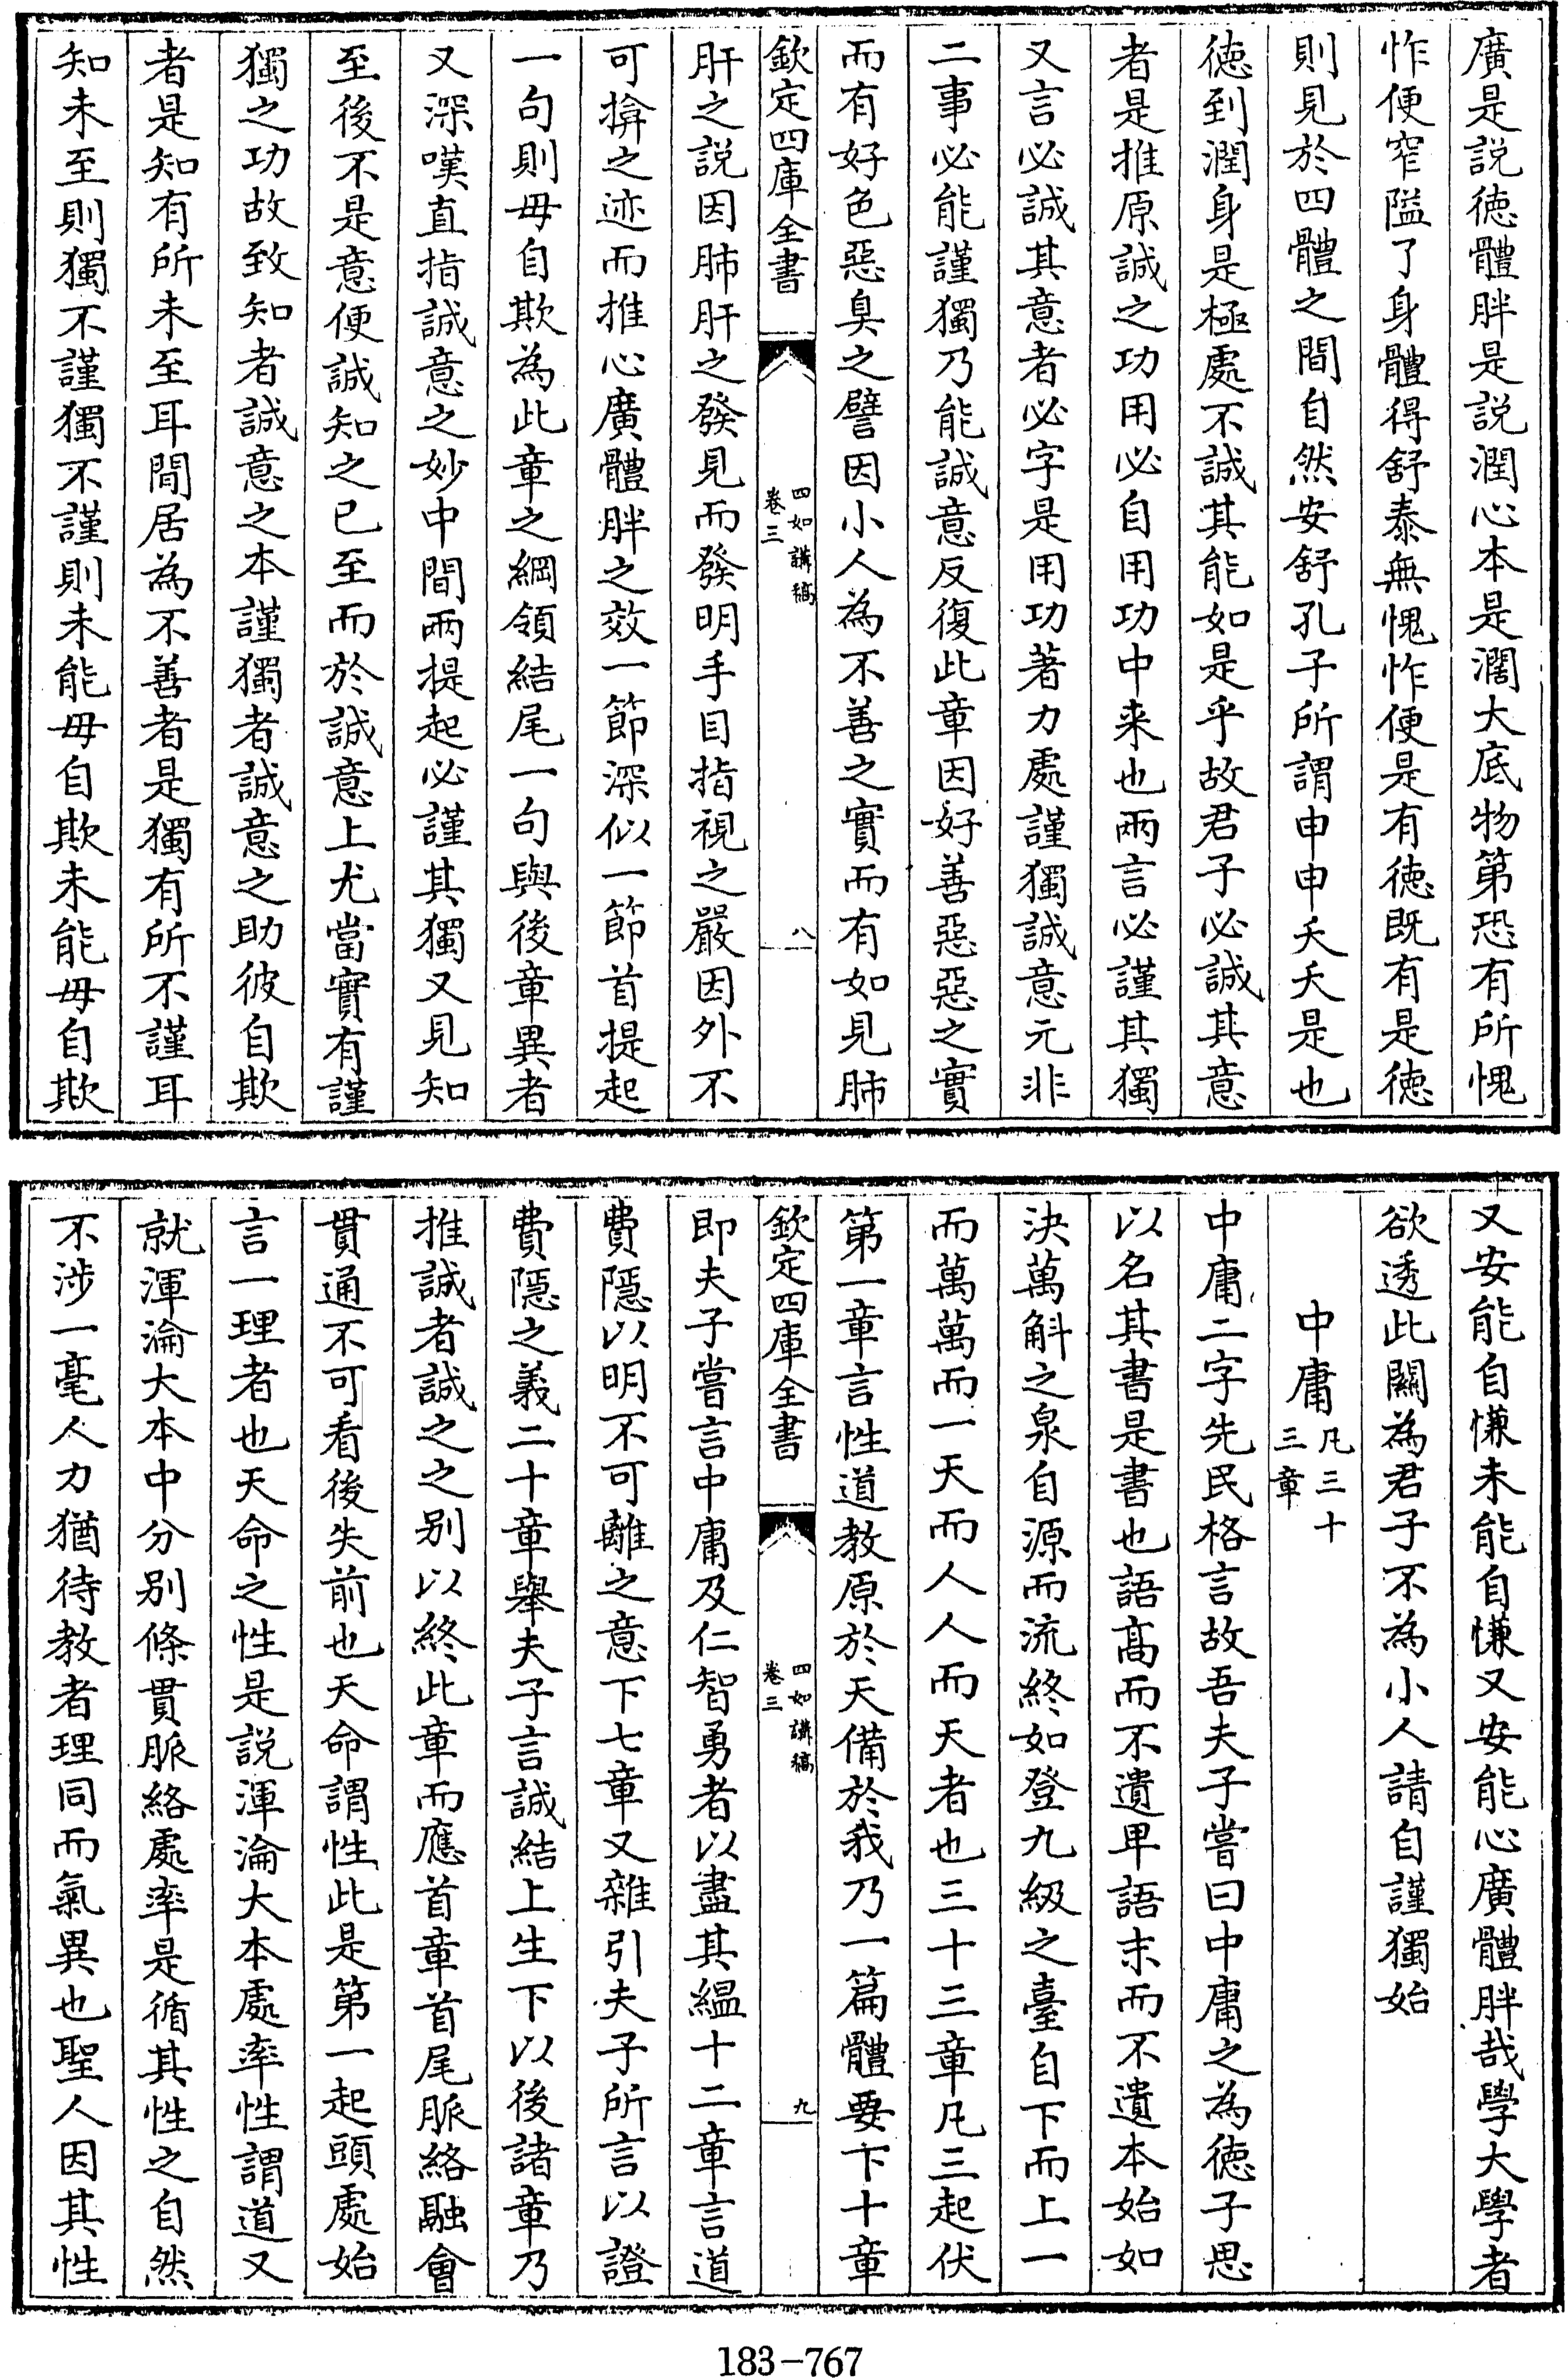 廣是説徳體胖是説潤心本是濶大底物第恐有所愧
怍便窄隘了身體得舒泰無愧怍便是有徳既有是徳
則見於四體之間自然安舒孔子所謂申申夭夭是也
徳到潤身是極處不誠其能如是乎故君子必誠其意
者是推原誠之功用必自用功中来也兩言必謹其獨
又言必誠其意者必字是用功著力處謹獨誠意元非
二事必能謹獨乃能誠意反復此章因好善惡惡之實
而有好色惡臭之譬因小人為不善之實而有如見肺
欽定四庫全書
四如講稿
卷三
八
肝之説因肺肝之發見而發明手目指視之嚴因外不
可揜之迹而推心廣體胖之效一節深似一節首提起
一句則毋自欺為此章之綱領結尾一句與後章異者
又深嘆直指誠意之妙中間兩提起必謹其獨又見知
至後不是意便誠知之已至而於誠意上尤當實有謹
獨之功故致知者誠意之本謹獨者誠意之助彼自欺
者是知有所未至耳間居為不善者是獨有所不謹耳
知未至則獨不謹獨不謹則未能毋自欺未能毋自欺
又安能自慊未能自慊又安能心廣體胖哉學大學者
欲透此關為君子不為小人請自謹獨始
中庸凡三十
三章
中庸二字先民格言故吾夫子嘗曰中庸之為徳子思
以名其書是書也語髙而不遺卑語末而不遺本始如
決萬斛之泉自源而流終如登九級之臺自下而上一
而萬萬而一天而人人而天者也三十三章凡三起伏
第一章言性道教原於天備於我乃一篇體要下十章
欽定四庫全書
四如講稿
卷三
九
即夫子嘗言中庸及仁智勇者以盡其緼十二章言道
費隱以明不可離之意下七章又雜引夫子所言以證
費隱之義二十章舉夫子言誠結上生下以後諸章乃
推誠者誠之之别以終此章而應首章首尾脈絡融會
貫通不可看後失前也天命謂性此是第一起頭處始
言一理者也天命之性是説渾淪大本處率性謂道又
就渾淪大本中分别條貫脈絡處率是循其性之自然
不涉一毫人力猶待教者理同而氣異也聖人因其性
183-767